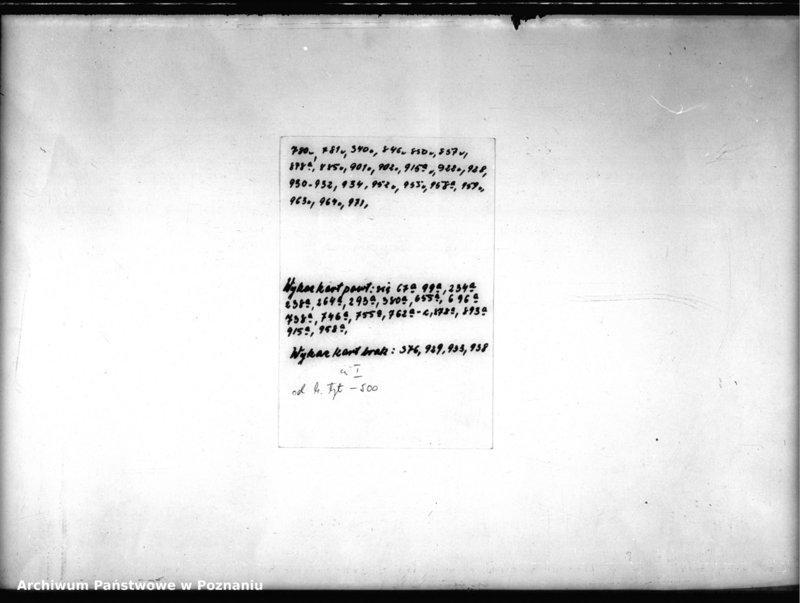 780v, 781v, 340v, 846v 850v, 857v,
878ª, 885v, 901v, 902v, 915ª v, 922v, 928,
930-932, 934, 952v, 955v, 958ª, 959v,
963v, 964v, 971,
Wykaz kart powt: się 67ª 99ª, 234ª
238ª, 264ª, 293ª, 380ª, 655ª, 696ª
738ª, 746ª, 755ª, 762ª-c, 878ª, 893ª
915ª, 958ª,
Wykaz kart brak: 376, 929, 933, 938
cz I
od k. tyt - 500
Archiwum Państwowe w Poznaniu